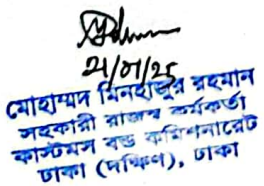 ২১/০১/২৫
মোহাম্মদ মিনহাজুর রহমান
সহকারী রাজস্ব কর্মকর্তা
কাস্টমস বন্ড কমিশনারেট
ঢাকা (দক্ষিণ), ঢাকা